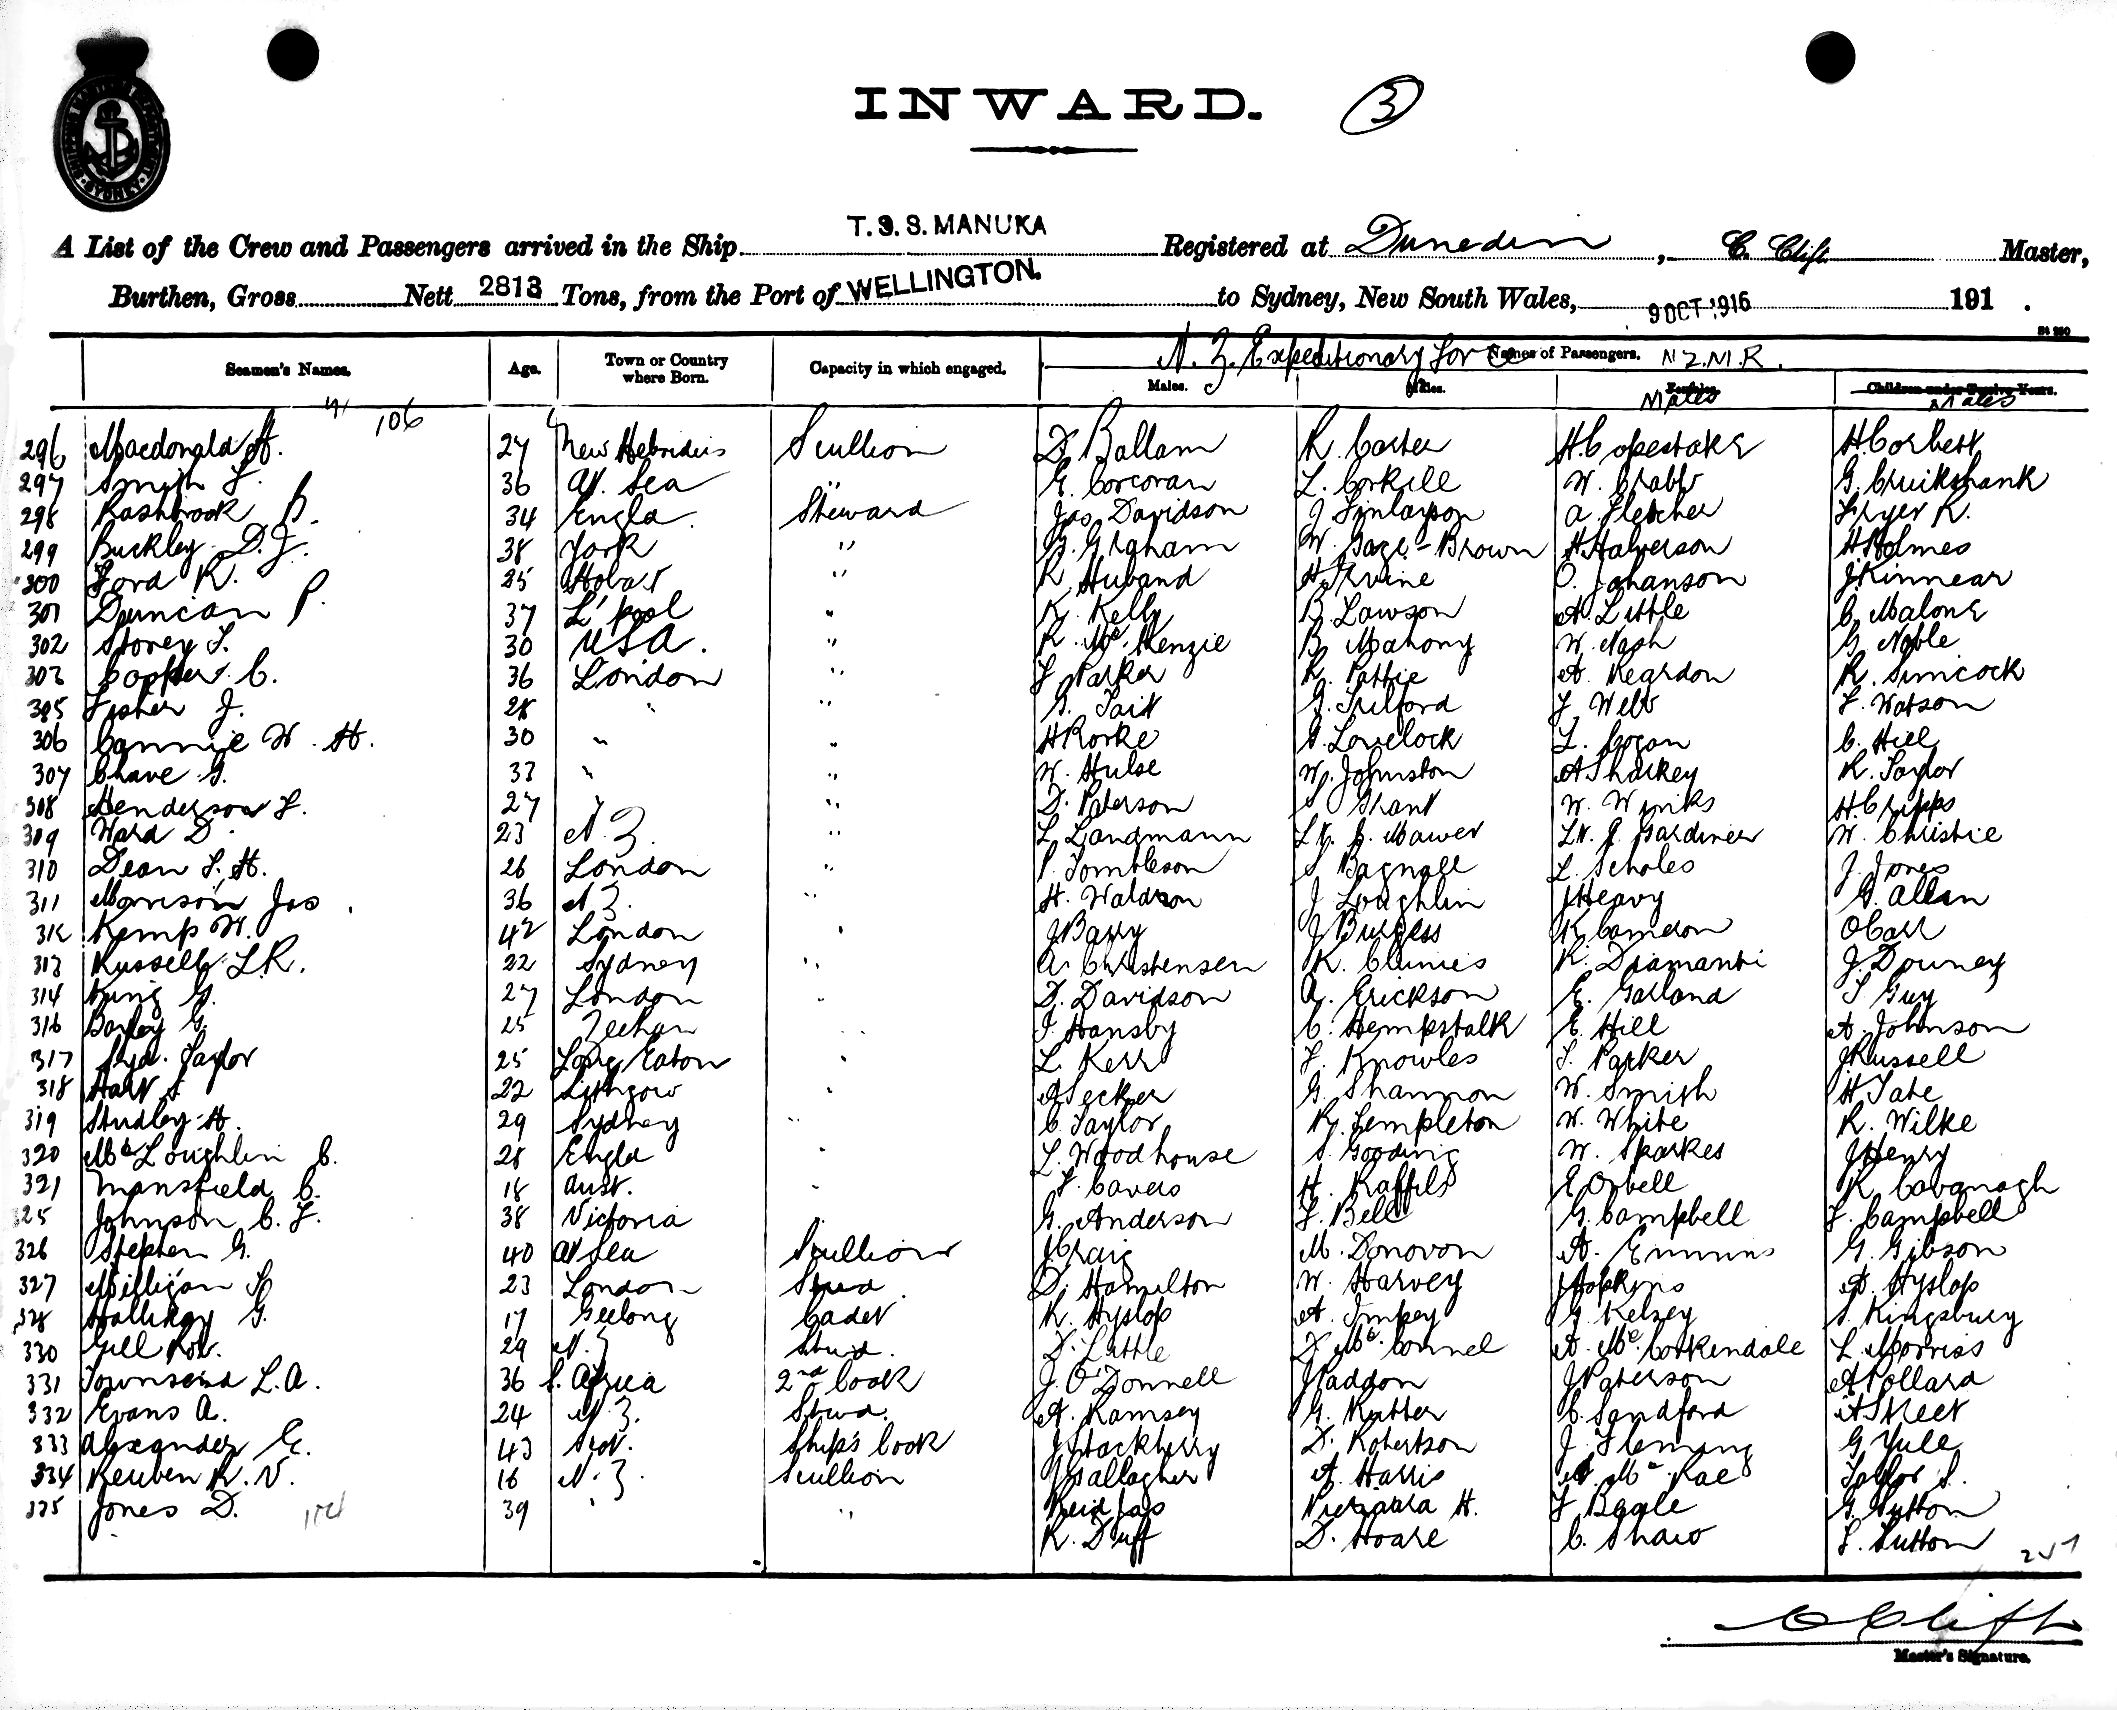 INWARD. 3
T.S.S. MANUKA
A List of the Crew and Passengers arrived in the Ship Registered at Dunedin, C. Clift Master,
Burthen, Gross Nett 2813 Tons, from the Port of WELLINGTON. to Sydney, New South Wales, 9 OCT 1916 191 .
N.Z. Expeditionary Force Names of Passengers. N.Z.M.R.
Seamen's Names. Age. Town or Country where Born. Capacity in which engaged. Males. Males. Females Children under Twelve Years.
Males Males
106
296 Macdonald A. 27 New Hebrides Scullion D. Ballam R. Carter H. Copestake H Corbett
297 Smith F. 36 At Sea " G. Corcoran L. Corkill W. Crabb G. Cruikshank
298 Rashbrook B. 34 Engld. Steward Jas Davidson J Finlayson A. Fletcher Fryer R.
299 Buckley D.J. 38 York " G. Graham W. Gage-Brown H Halverson H Holmes
300 Ford R. 25 Hobart " R Huband H Irvine O. Johanson J Kinnear
301 Duncan P. 37 L'pool " K. Kelly B. Lawson A. Little C. Malone
302 Storey F. 30 USA. " R. McKenzie B. Mahony W. Nash G. Noble
303 Copper C. 36 London " F Parker R. Pattie A. Reardon R. Simcock
305 Fisher J. 28 " " G. Tait G. Tulford F Webb F. Watson
306 Cannie W. H. 30 " " H Rorke A. Lovelock L. Cogan C. Hill
307 Chave G. 33 " " W. Hulse W. Johnston A Sharkey R. Taylor
308 Henderson F. 27 " " D. Paterson S Grant W. Winks H. Cripps
309 Ward D. 23 N.Z. " L Landmann Lt. G. Mawer Lt. G. Gardiner W. Christie
310 Dean F. H. 26 London " P. Tombleson S Bagnall L. Scholes J. Jones
311 Morrison Jas. 36 N.Z. " H. Waldron J Loughlin J Heavy G. Allan
312 Kemp W. 42 London " J Barry J Burgess K Camdon O Carr
313 Russell L.R. 22 Sydney " A. Christensen R. Clunies R. Diamanti J. Downey
314 King G. 27 London " D. Davidson A. Erickson E. Garland S Guy
316 Bayley G. 25 Zeehan " J Hansby C. Hempstalk E. Hill A. Johnson
317 Syd. Taylor 25 Long Eaton " L. Kerr F. Knowles F. Parker J Russell
318 Hart S 22 Lithgow " A Secker G. Shannon W. Smith H Tate
319 Studley H. 29 Sydney " C. Taylor R. Templeton W. White R. Wilke
320 McLoughlin C. 28 Engld " L. Woodhouse S. Gooding W. Sparkes J Henry
321 Mansfield C. 18 Aust. " F. Cavers H. Raffils E Orbell R Cavanagh
325 Johnson C. F. 38 Victoria G. Anderson F. Bell G. Campbell F. Campbell
326 Stephen G. 40 At Sea Scullion J Craig M. Donovon A. Emmins G. Gibson
327 Milligan S 23 London Stwd. D. Hamilton W. Harvey J Hopkins A. Hyslop
328 Halliday G. 17 Geelong Cadet R. Hyslop A. Impey G. Kelsey S. Kingsbury
330 Gill Robt. 29 N.Z. Stwd. D. Little D McConnel A. McCorkendale L. Morriss
331 Townsend L.A. 36 S. Africa 2nd Cook J. O'Donnell J Paddon J Paterson A Pollard
332 Evans A. 24 N.Z. Stwd. A. Ramsey G. Rutter C. Sandford A Street
333 Alexander E. 43 Scot. Ship's Cook J Stackberry D. Robertson J. Fleming G Yule
334 Reuben R. V. 16 N.Z. Scullion J Gallagher A. Harris A. McRae Taylor S.
335 Jones D. 39 " " Reid Jas H. F Beale G. Sutton
R. Duff D. Hoare C. Shaw F. Sutton
C Clift
Master's Signature.